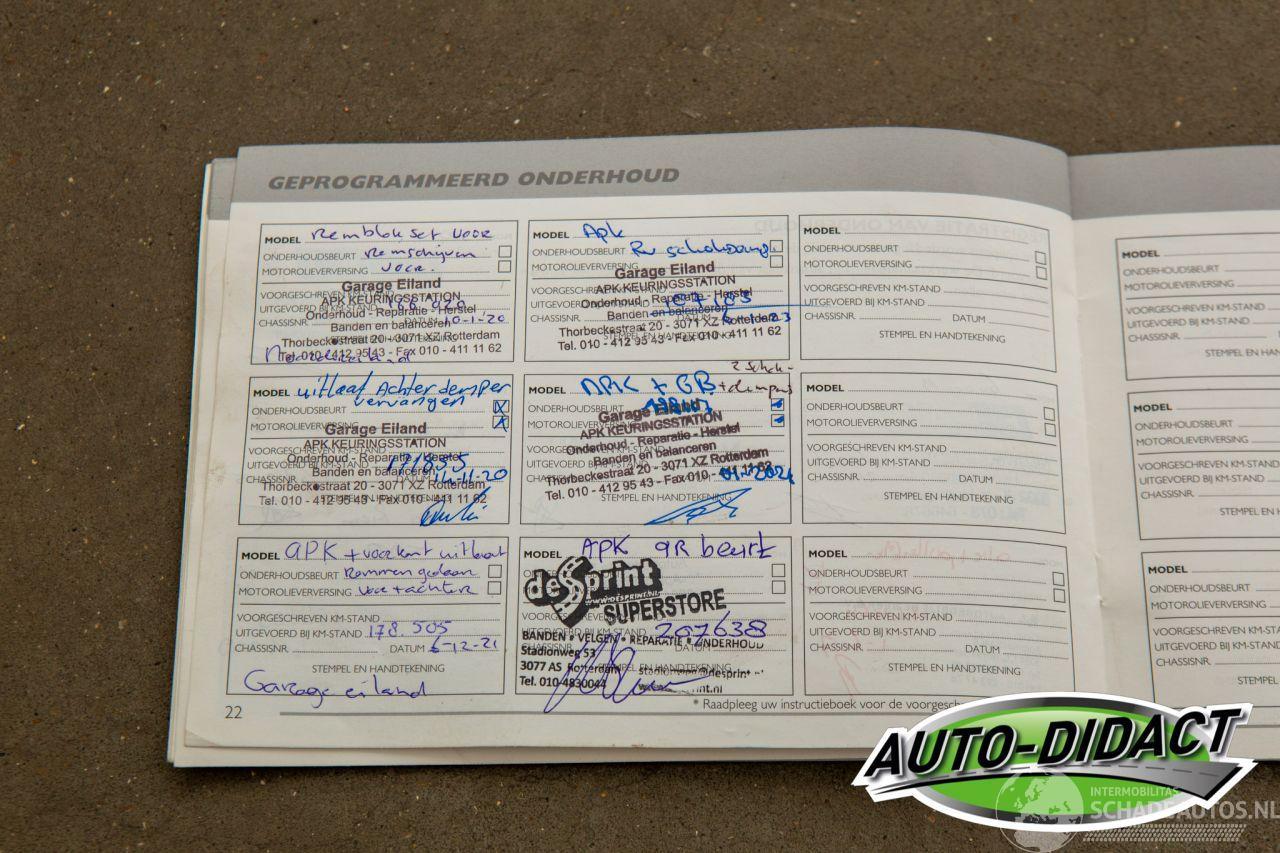 GEPROGRAMMEERD ONDERHOUD
MODEL Remblokset voor
ONDERHOUDSBEURT Remschijven
MOTOROLIEVERVERSING voor.
VOORGESCHREVEN KM-STAND
Garage Eiland
APK KEURINGSSTATION
UITGEVOERD BIJ KM-STAND
Onderhoud - Reparatie - Herstel
CHASSISNR. DATUM 10-1-20
Banden en balanceren
STEMPEL EN HANDTEKENING
Thorbeckestraat 20 - 3071 XZ Rotterdam
Tel. 010 - 412 95 43 - Fax 010 - 411 11 62
MODEL Apk
ONDERHOUDSBEURT
MOTOROLIEVERVERSING
Garage Eiland
VOORGESCHREVEN KM-STAND
APK KEURINGSSTATION
UITGEVOERD BIJ KM-STAND
Onderhoud - Reparatie - Herstel
CHASSISNR. DATUM
Banden en balanceren
Thorbeckestraat 20 - 3071 XZ Rotterdam
STEMPEL EN HANDTEKENING
Tel. 010 - 412 95 43 - Fax 010 - 411 11 62
MODEL
ONDERHOUDSBEURT
MOTOROLIEVERVERSING
VOORGESCHREVEN KM-STAND
UITGEVOERD BIJ KM-STAND
CHASSISNR. DATUM
STEMPEL EN HANDTEKENING
MODEL uitlaat Achter demper
vervangen
ONDERHOUDSBEURT X
MOTOROLIEVERVERSING X
Garage Eiland
APK KEURINGSSTATION
VOORGESCHREVEN KM-STAND
Onderhoud - Reparatie - Herstel
UITGEVOERD BIJ KM-STAND 171855
Banden en balanceren
CHASSISNR. DATUM 14-11-20
Thorbeckestraat 20 - 3071 XZ Rotterdam
Tel. 010 - 412 95 43 - Fax 010 - 411 11 62
STEMPEL EN HANDTEKENING
MODEL APK + GB +
ONDERHOUDSBEURT
MOTOROLIEVERVERSING
Garage Eiland
APK KEURINGSSTATION
Onderhoud - Reparatie - Herstel
Banden en balanceren
Thorbeckestraat 20 - 3071 XZ Rotterdam
Tel. 010 - 412 95 43 - Fax 010 - 411 11 62
01-2024
STEMPEL EN HANDTEKENING
MODEL
ONDERHOUDSBEURT
MOTOROLIEVERVERSING
VOORGESCHREVEN KM-STAND
UITGEVOERD BIJ KM-STAND
CHASSISNR. DATUM
STEMPEL EN HANDTEKENING
MODEL APK + voorkant uitlaat
ONDERHOUDSBEURT Remmen gedaan
MOTOROLIEVERVERSING voor + achter
VOORGESCHREVEN KM-STAND
UITGEVOERD BIJ KM-STAND 178.505
CHASSISNR. DATUM 6-12-21
STEMPEL EN HANDTEKENING
Garage eiland
MODEL APK gR beurt
deSprint
WWW.DESPRINT.NL
SUPERSTORE
UITGEVOERD BIJ KM-STAND 207638
BANDEN • VELGEN • REPARATIE • ONDERHOUD
Stadionweg 53
3077 AS Rotterdam
STEMPEL EN HANDTEKENING
Tel. 010-4830044
MODEL
ONDERHOUDSBEURT
MOTOROLIEVERVERSING
VOORGESCHREVEN KM-STAND
UITGEVOERD BIJ KM-STAND
CHASSISNR. DATUM
STEMPEL EN HANDTEKENING
22
* Raadpleeg uw instructieboek voor de
MODEL
ONDERHOUDSBEURT
MOTOROLIEVERVERSING
VOORGESCHREVEN KM-STAND
UITGEVOERD BIJ KM-STAND
CHASSISNR.
STEMPEL EN
MODEL
ONDERHOUDSBEURT
MOTOROLIEVERVERSING
VOORGESCHREVEN KM-STAND
UITGEVOERD BIJ KM-STAND
CHASSISNR.
STEMPEL EN
MODEL
ONDERHOUDSBEURT
MOTOROLIEVERVERSING
VOORGESCHREVEN KM-STAND
UITGEVOERD BIJ KM-STAND
CHASSISNR.
STEMPEL
AUTO-DIDACT
INTERMOBILITAS
SCHADEAUTOS.NL